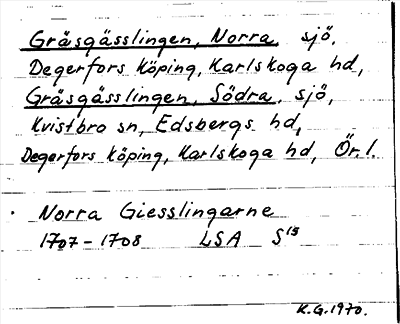 Gräsgässlingen, Norra, sjö,
Degerfors köping, Karlskoga hd,
Gräsgässlingen, Södra, sjö,
Kvistbro sn, Edsbergs hd,
Degerfors köping, Karlskoga hd, Ör. l.
Norra Giesslingarne
1707-1708 LSA S¹³
K.G. 1970.